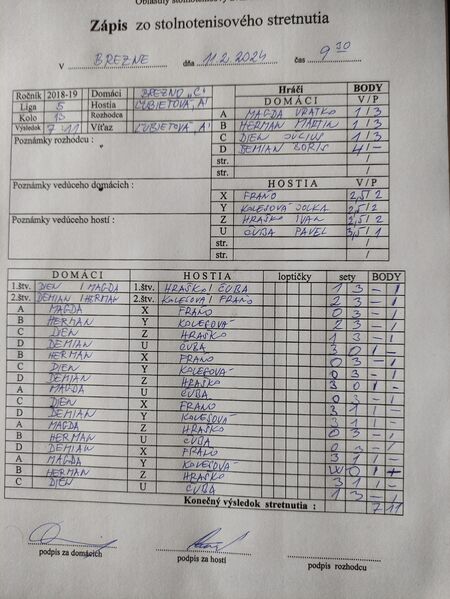 Zápis zo stolnotenisového stretnutia
V BREZNE dňa 11.2.2024 čas 9 30
Ročník 2018-19 Domáci BREZNO „C“
Liga 5 Hostia ĽUBIETOVÁ „A“
Kolo 13 Rozhodca
Výsledok 7:11 Víťaz ĽUBIETOVÁ „A“
Poznámky rozhodcu :
Poznámky vedúceho domácich :
Poznámky vedúceho hostí :
Hráči BODY
DOMÁCI V/P
A MAGDA VRATKO 1/3
B HERMAN MARTIN 1/3
C DIEN JÚLIUS 1/3
D DEMIAN BORIS 4/-
str. /
str. /
HOSTIA V/P
X FRAŇO 2,5/2
Y KOLESOVÁ 2,5/2
Z HRAŠKO IVAN 2,5/2
U ČUBA PAVEL 3,5/1
str. /
str. /
DOMÁCI HOSTIA loptičky sety BODY
1.štv. DIEN / MAGDA 1.štv. HRAŠKO / ČUBA 1 3 - 1
2.štv. DEMIAN / HERMAN 2.štv. KOLESOVÁ / FRAŇO 2 3 - 1
A MAGDA X FRAŇO 0 3 - 1
B HERMAN Y KOLESOVÁ 2 3 - 1
C DIEN Z HRAŠKO 1 3 - 1
D DEMIAN U ČUBA 3 0 1 -
B HERMAN X FRAŇO 0 3 - 1
C DIEN Y KOLESOVÁ 0 3 - 1
D DEMIAN Z HRAŠKO 3 0 1 -
A MAGDA U ČUBA 0 3 - 1
C DIEN X FRAŇO 3 1 1 -
D DEMIAN Y KOLESOVÁ 3 1 1 -
A MAGDA Z HRAŠKO 0 3 - 1
B HERMAN U ČUBA 0 3 - 1
D DEMIAN X FRAŇO 3 1 1 -
A MAGDA Y KOLESOVÁ
B HERMAN Z HRAŠKO 3 1 1 -
C DIEN U ČUBA 1 3 - 1
Konečný výsledok stretnutia : 7 11
podpis za domácich podpis za hostí podpis rozhodcu